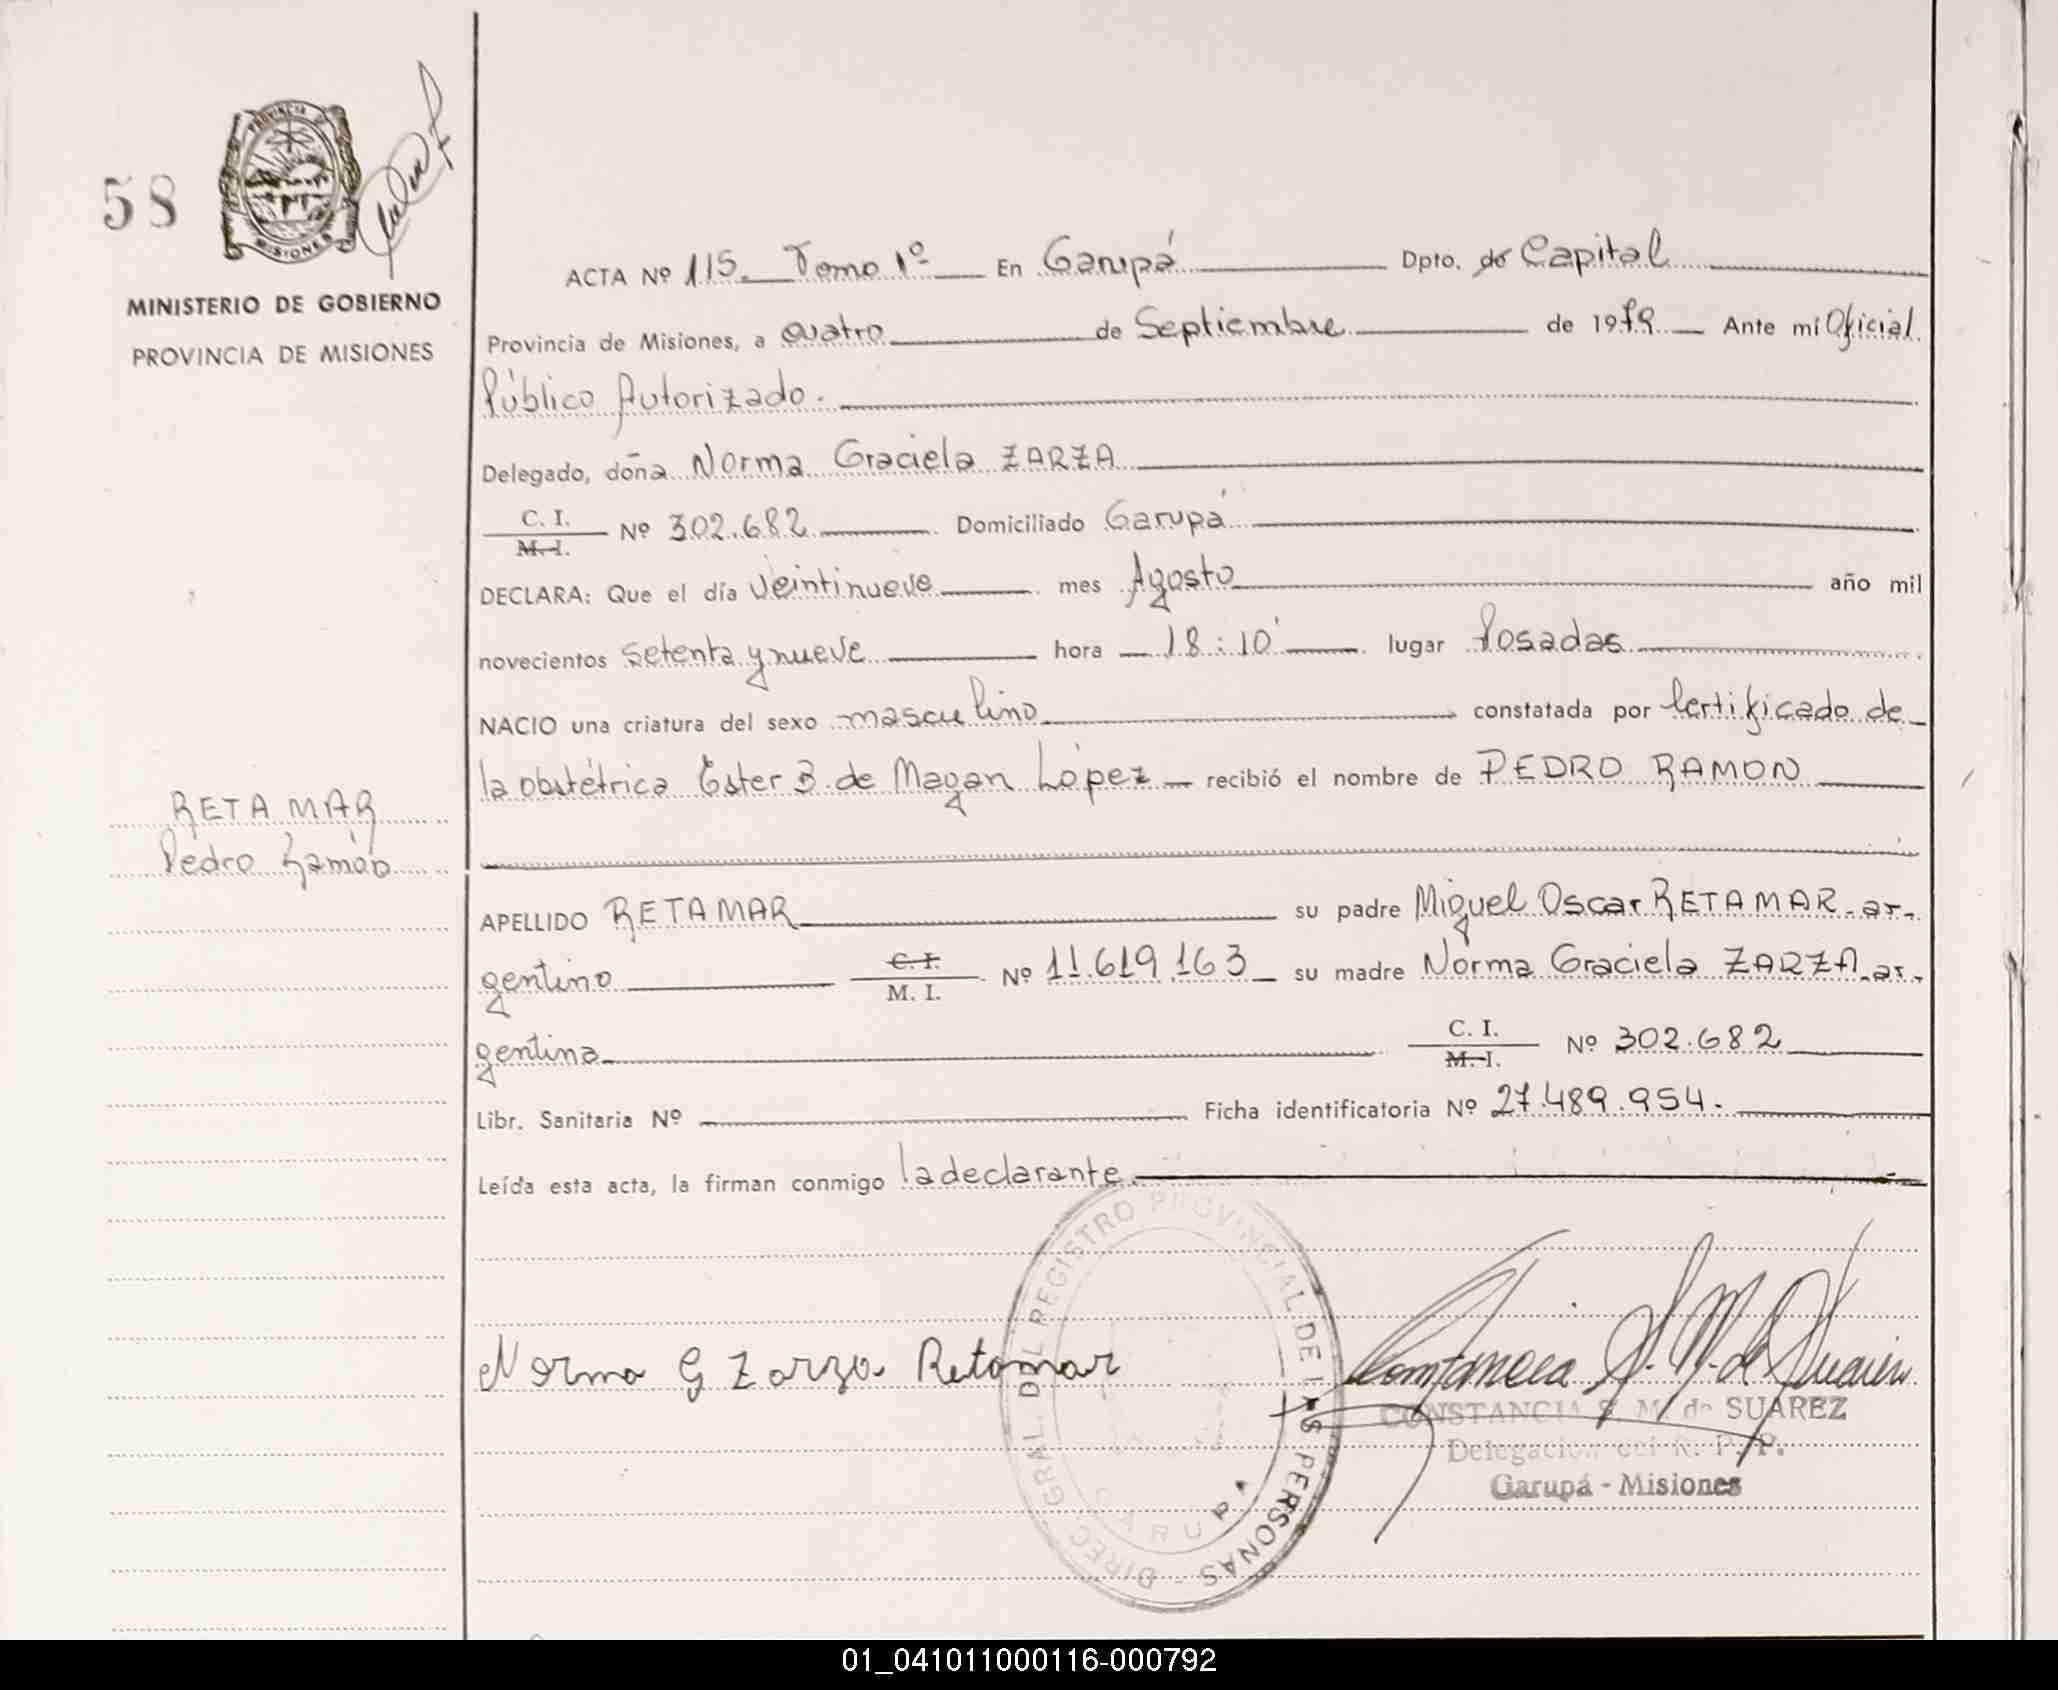 58
PROVINCIA DE
MISIONES
MINISTERIO DE GOBIERNO
PROVINCIA DE MISIONES
ACTA Nº 115. Tomo 1º En Garupá Dpto. de Capital
Provincia de Misiones, a cuatro de Septiembre de 1979 Ante mí Oficial
Público Autorizado.
Delegado, doña Norma Graciela ZARZA
C. I.
M. I. Nº 302.682 Domiciliado Garupá
DECLARA: Que el día veintinueve mes Agosto año mil
novecientos setenta y nueve hora 18:10' lugar Posadas
NACIO una criatura del sexo masculino constatada por Certificado de
la obstétrica Ester B. de Magan López recibió el nombre de PEDRO RAMON
RETAMAR
Pedro Ramón
APELLIDO RETAMAR su padre Miguel Oscar RETAMAR - ar-
gentino C. I.
M. I. Nº 11.619.163 su madre Norma Graciela ZARZA - ar-
gentina C. I.
M. I. Nº 302.682
Libr. Sanitaria Nº Ficha identificatoria Nº 27.489.954.
Leída esta acta, la firman conmigo la declarante.
DIREC. GRAL. DEL REGISTRO PROVINCIAL DE LAS PERSONAS -
Norma G Zarza Retamar
Constancia S. M. de Suarez
CONSTANCIA S. M. de SUAREZ
Delegacion del R. P. P.
Garupá - Misiones
01_041011000116-000792